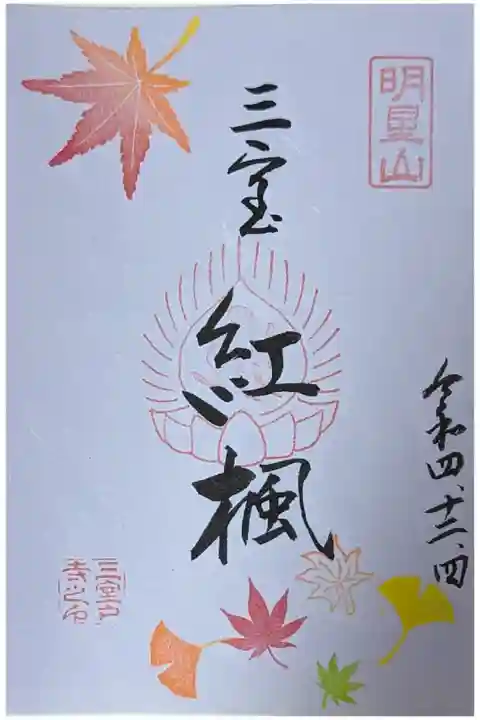 明星山
三宝
紅
楓
令和四、十二、四
三室戸
寺之印